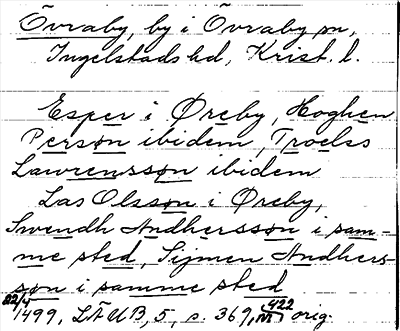 Övraby, by i Övraby sn,
Ingelstads hd, Krist. l.
Esper i Øreby, Hoghen
Person ibidem, Troels
Lawrensson ibidem
Las Olsson i Øreby,
Swendh Andhersson i sam-
me sted, Sijmen Andhers-
son i samme sted
22/4
1499, LÄUB, 5, s. 369, M 422 orig.